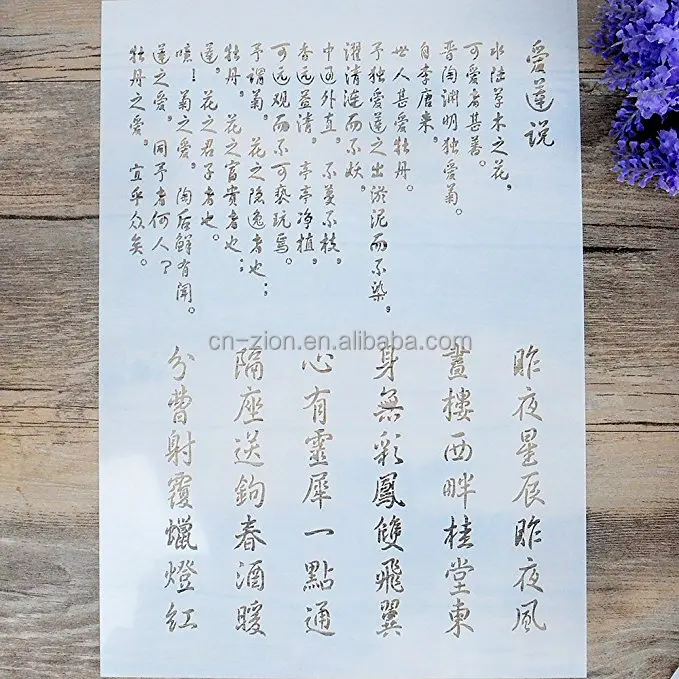 爱莲说
水陆草木之花，
可爱者甚蕃。
晋陶渊明独爱菊。
自李唐来，
世人甚爱牡丹。
予独爱莲之出淤泥而不染，
濯清涟而不妖，
中通外直，不蔓不枝，
香远益清，亭亭净植，
可远观而不可亵玩焉。
予谓菊，花之隐逸者也；
牡丹，花之富贵者也；
莲，花之君子者也。
噫！菊之爱，陶后鲜有闻。
莲之爱，同予者何人？
牡丹之爱，宜乎众矣。
cn-zion.en.alibaba.com
昨夜星辰昨夜風
畫樓西畔桂堂東
身無彩鳳雙飛翼
心有靈犀一點通
隔座送鉤春酒暖
分曹射覆蠟燈紅